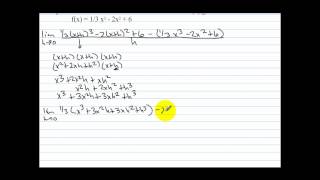 f(x) = 1/3 x³ - 2x² + 6
lim h→0 ⅓(x+h)³ - 2(x+h)² + 6 - (⅓x³ - 2x² + 6)
h
(x+h)(x+h)(x+h)
(x² + 2xh + h²)(x+h)
x³ + 2x²h + xh²
x²h + 2xh² + h³
x³ + 3x²h + 3xh² + h³
lim h→0 ⅓(x³ + 3x²h + 3xh² + h³) - 2